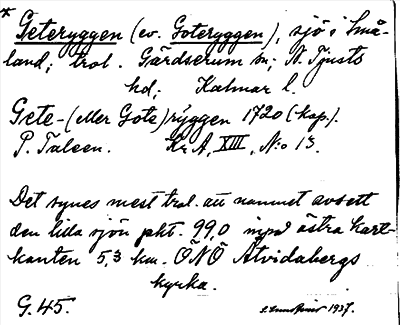 * Geteryggen (ev. Goteryggen), sjö i Små-
land; trol. Gärdserum sn; N. Tjusts
hd; Kalmar l.
Gete-(eller Gote)ryggen 1720 (kop.).
P. Taleen. Kr A, XIII, N:o 13.
Det synes mest trol. att namnet avsett
den lilla sjön pkt. 99,0 invid östra kart-
kanten 5,3 km. ÖNÖ Åtvidabergs
kyrka.
G. 45. 1937.